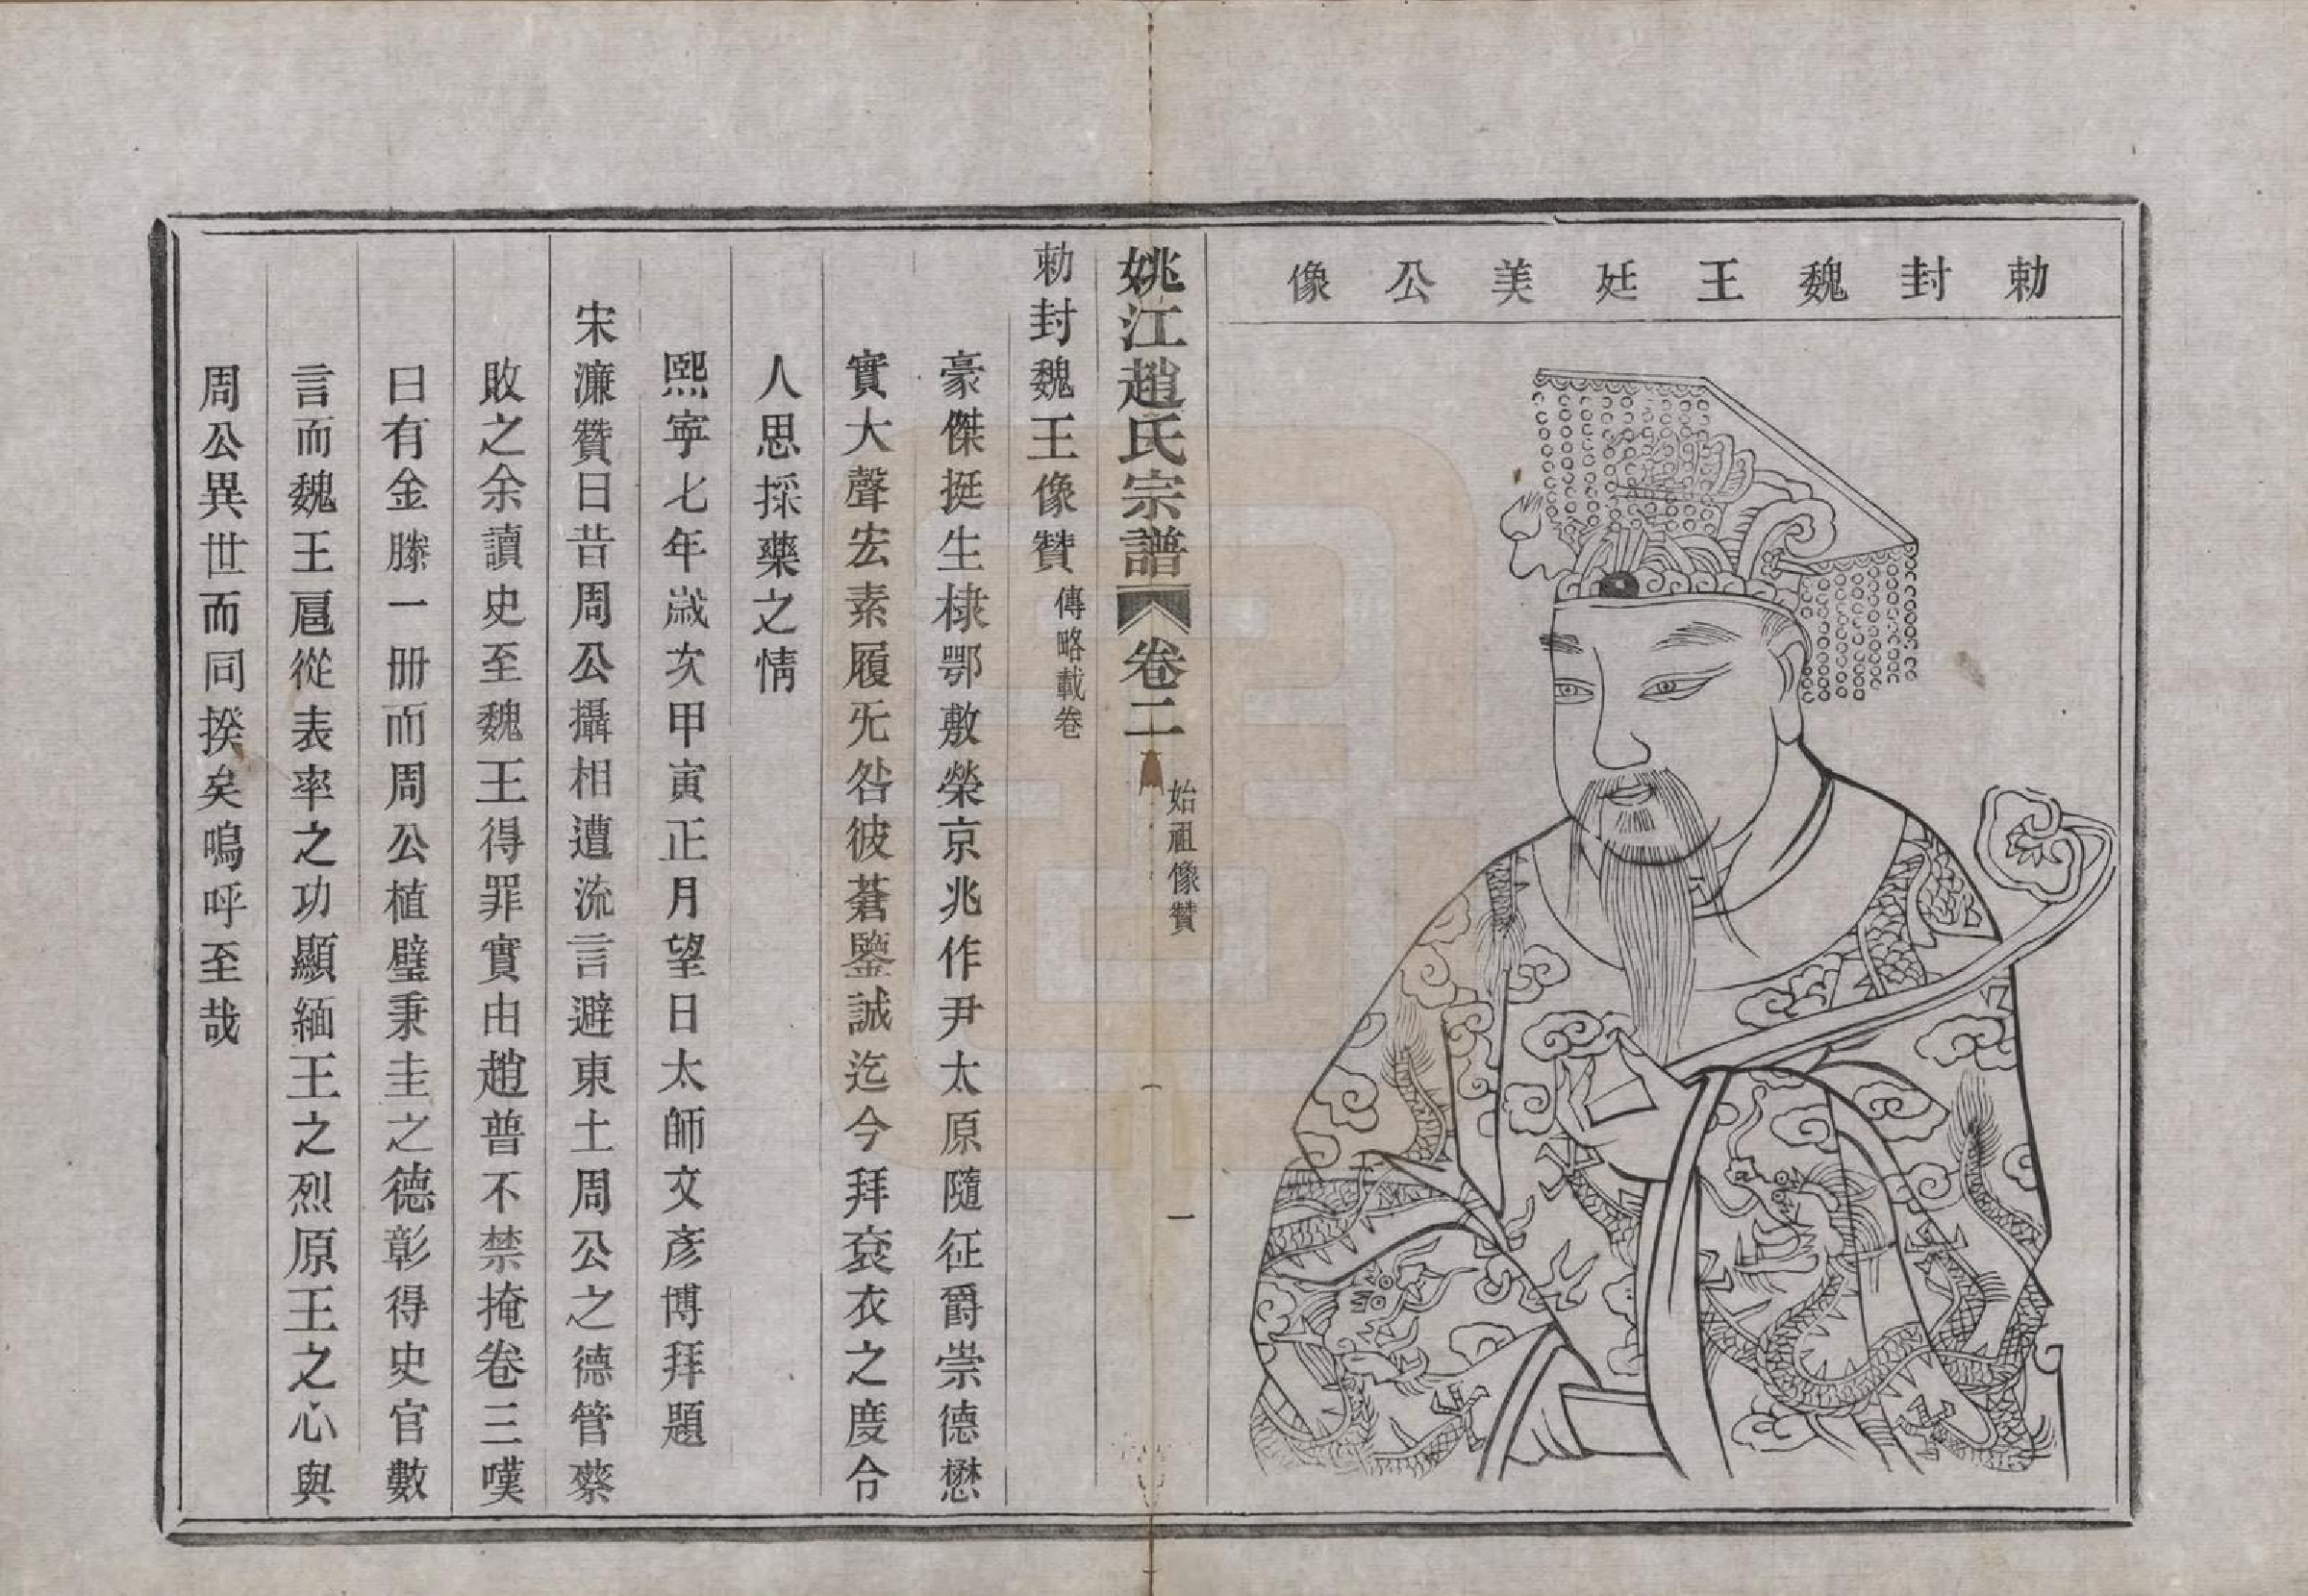 勅封魏王廷美公像
姚江趙氏宗譜
卷二
始祖像贊
一
勅封魏王像贊 傳略載卷
豪傑挺生棣鄂敷榮京兆作尹太原隨征爵崇德懋
實大聲宏素履旡咎彼蒼鑒誠迄今拜袞衣之度令
人思採藥之情
熙寜七年歲次甲寅正月望日太師文彥博拜題
宋濂贊曰昔周公攝相遭流言避東土周公之德管蔡
敗之余讀史至魏王得罪實由趙普不禁掩卷三嘆
曰有金縢一册而周公植璧秉圭之德彰得史官數
言而魏王扈從表率之功顯緬王之烈原王之心與
周公異世而同揆矣嗚呼至哉